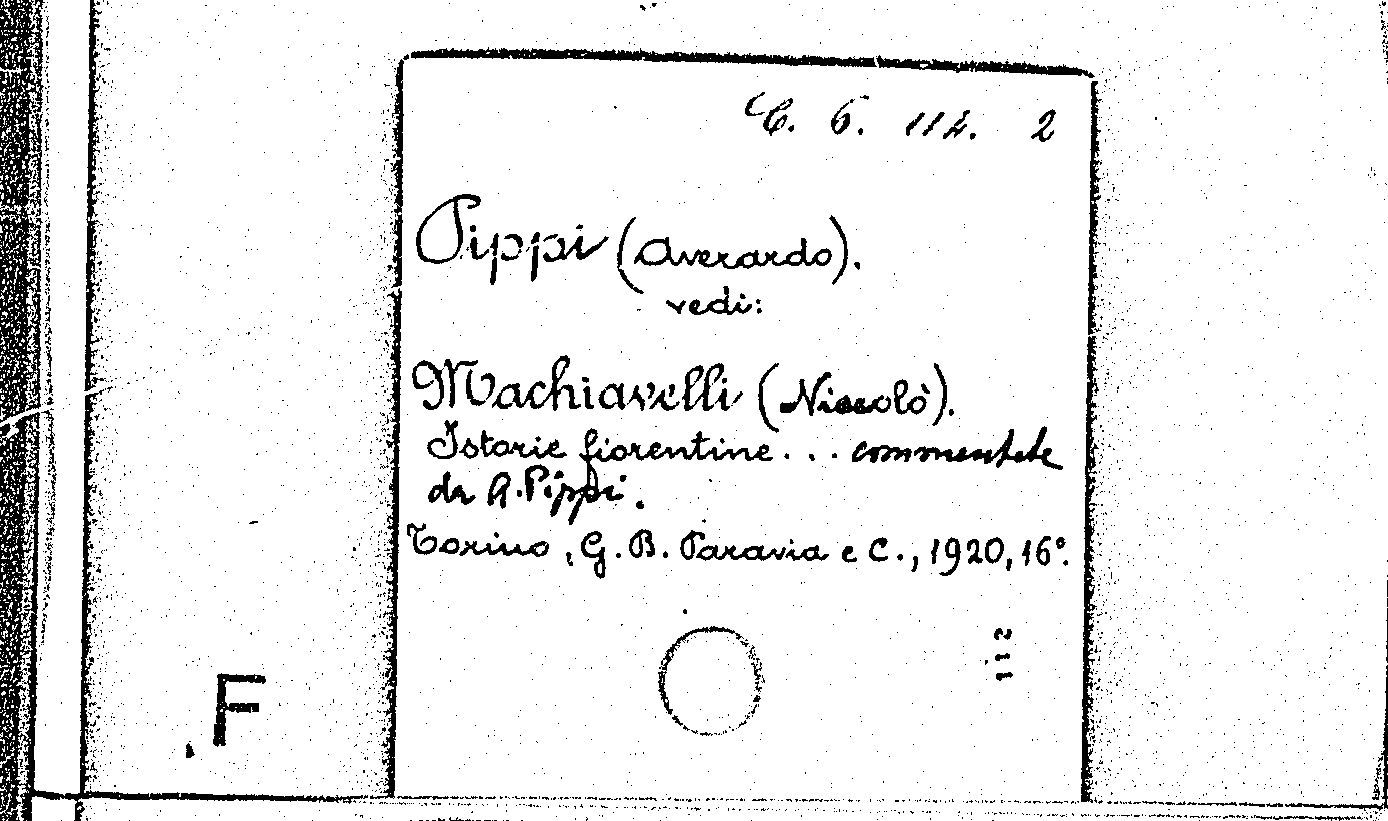 C. 6. 114. 2
Pippi (Averardo).
vedi:
Machiavelli (Niccolò).
Istorie fiorentine . . . commentate
da A. Pippi.
Torino, G. B. Paravia e C., 1920, 16°.
112
F